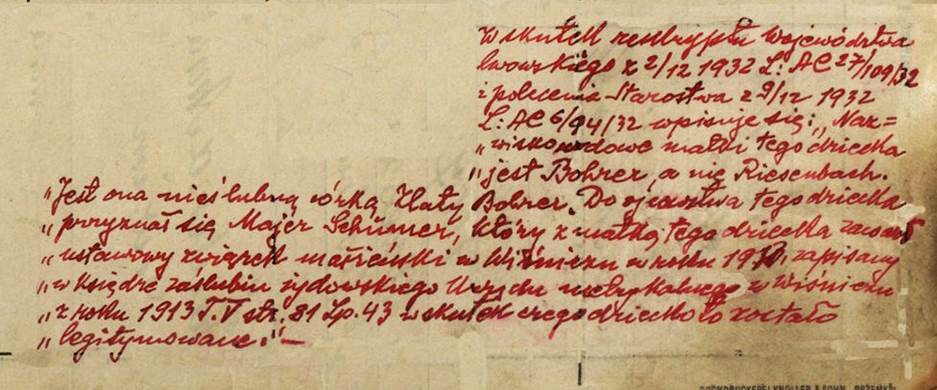 Wskutek reskryptu Województwa
lwowskiego z 2/12 1932 L: AC 27/109/32
i polecenia Starostwa z 9/12 1932
L: AC 6/94/32 wpisuje się: „Naz=
„wisko rodowe matki tego dziecka
„jest Bohrer, a nie Riesenbach.
„Jest ona nieślubną córką Złaty Bohrer. Do ojcostwa tego dziecka
„przyznał się Majer Schüner, który z matką tego dziecka zawarł
„ustawowy związek małżeński w Wiśniczu w roku zapisany
„w księdze zaślubin żydowskiego Urzędu metrykalnego w Wiśniczu
„z roku 1913 T. V str. 81 Lp. 43 wskutek czego dziecko to zostało
„legitymowane." —